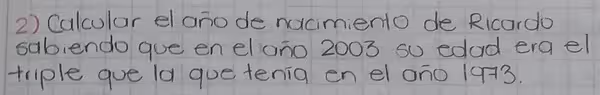 2) Calcular el año de nacimiento de Ricardo
sabiendo que en el año 2003 su edad era el
triple que la que tenía en el año 1973.